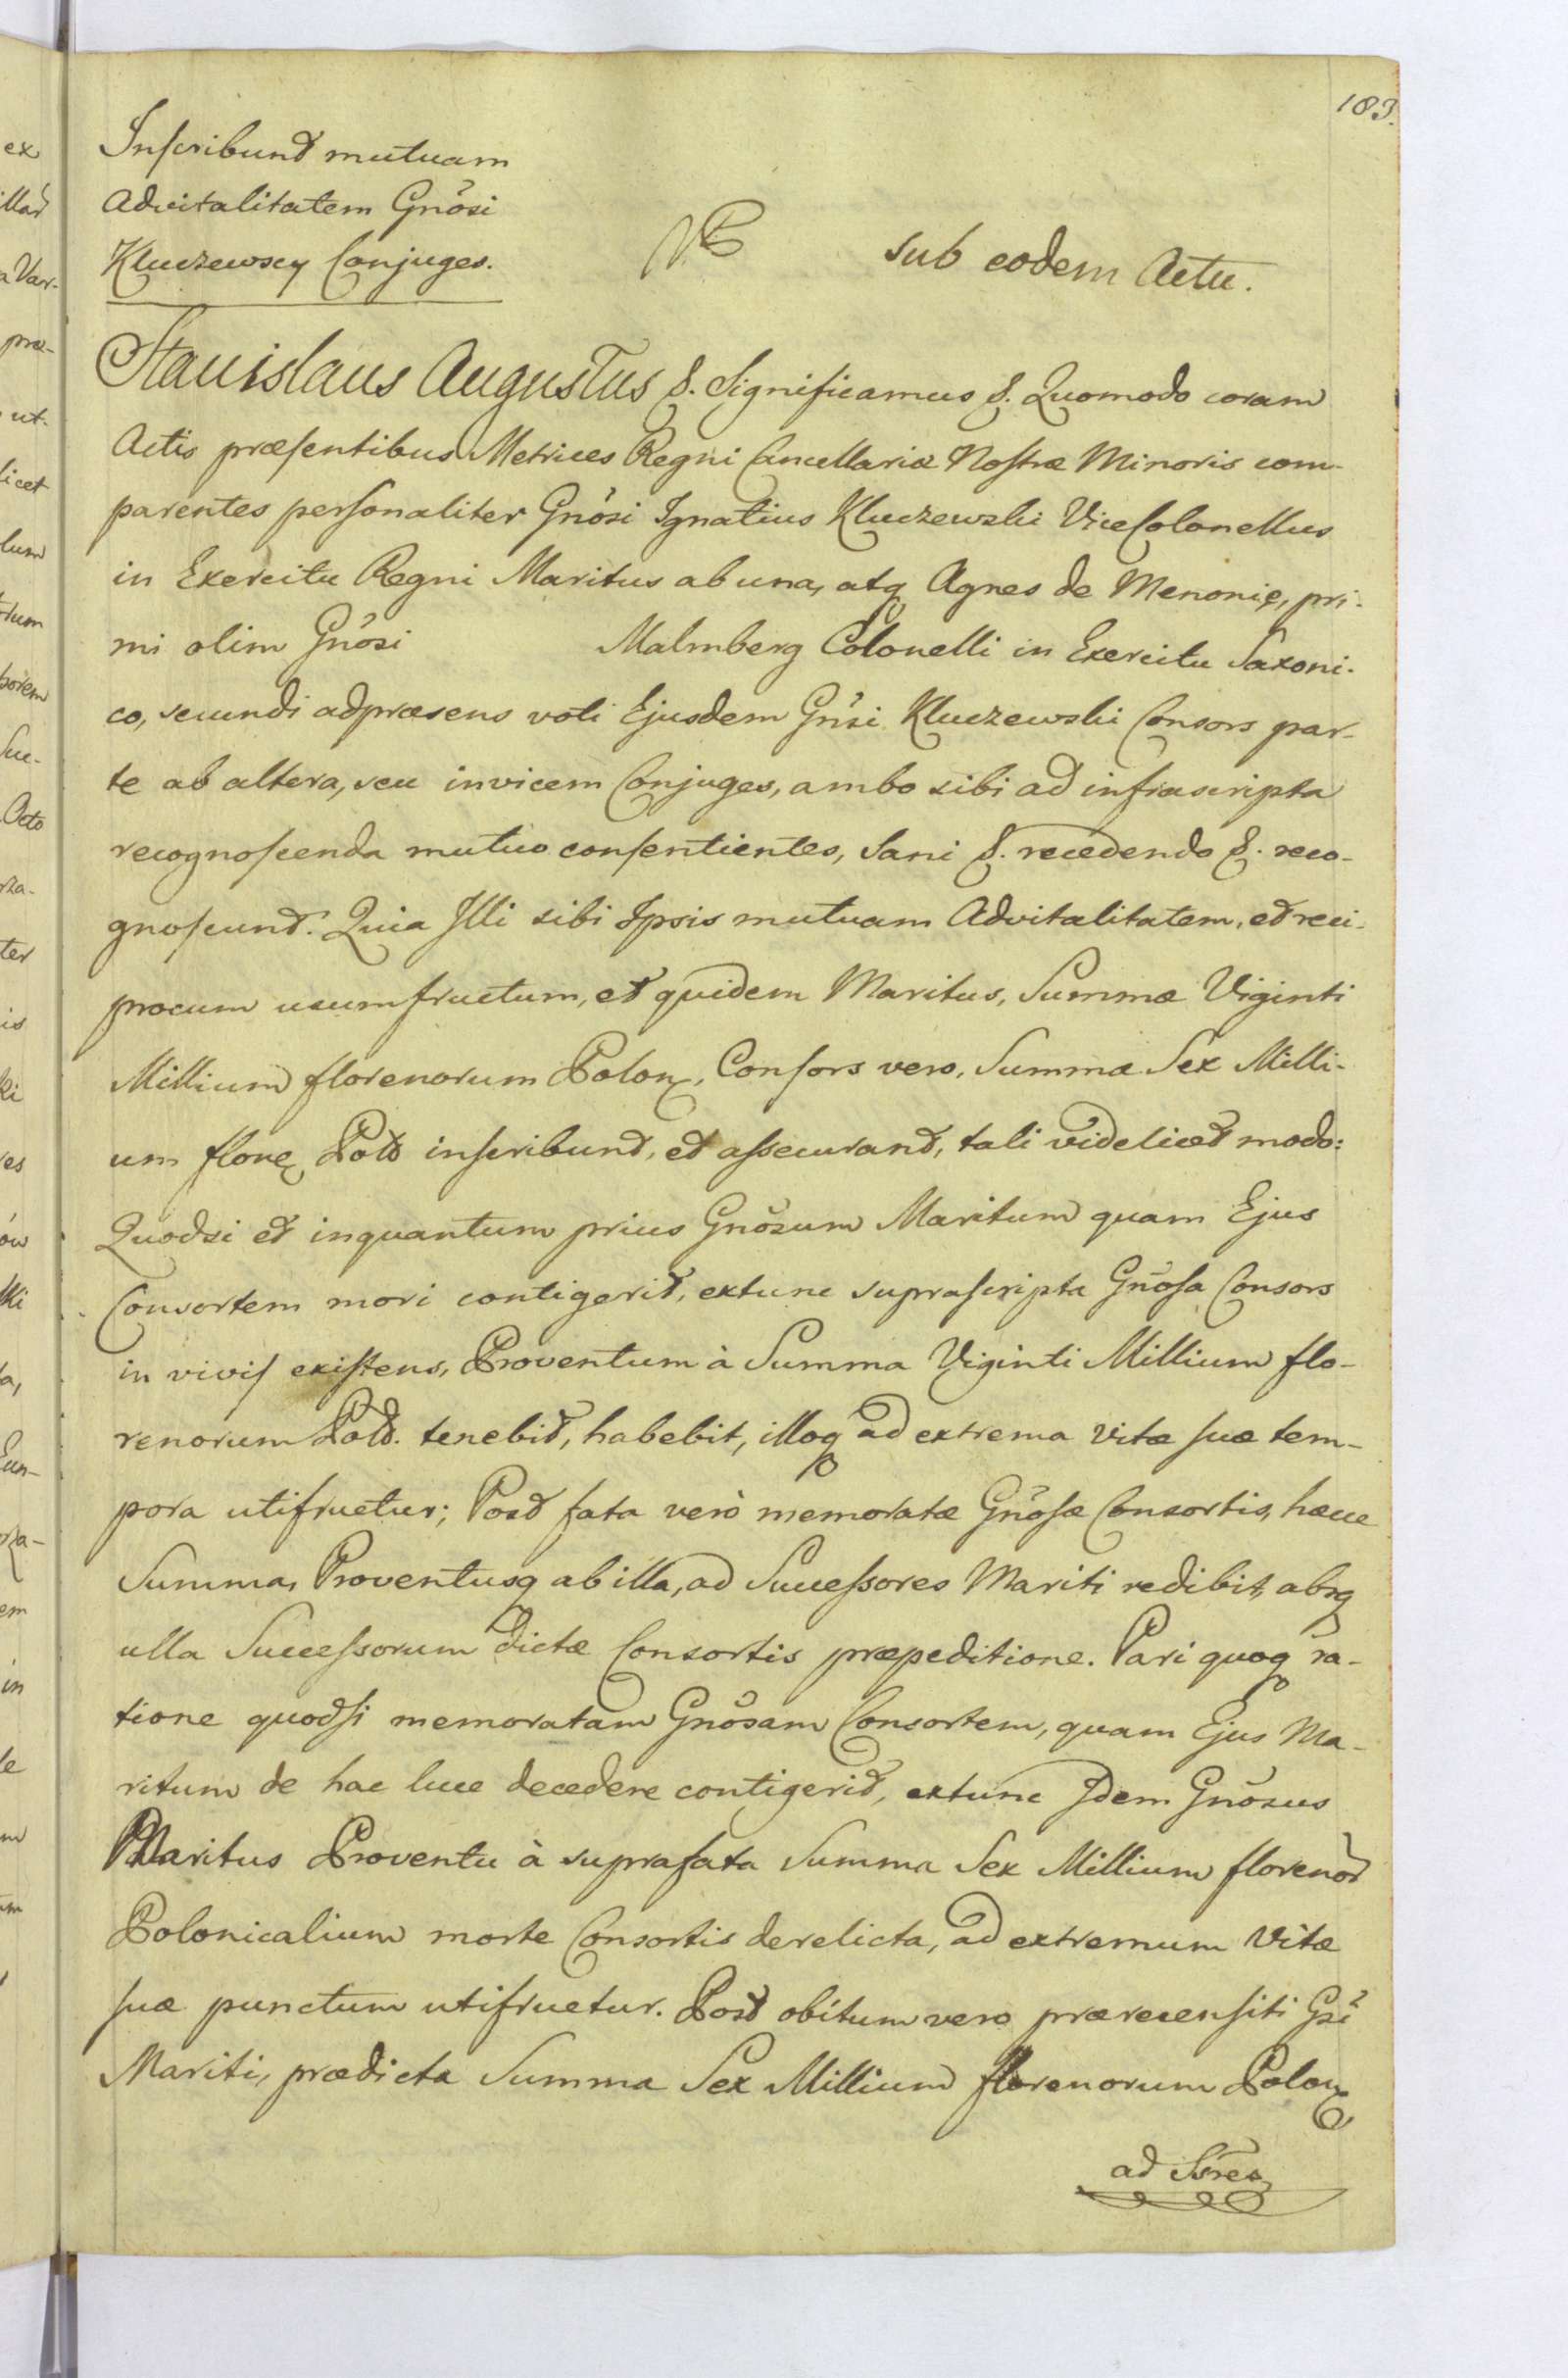 183.
Inscribunt mutuam
Advitalitatem Gnõsi
Kluczewscy Conjuges.
sub eodem Actu.
Stanislaus Augustus &. Significamus &. Quomodo coram
Actis præsentibus Metrices Regni Cancellariæ Nostræ Minoris com-
parentes personaliter Gnõsi Ignatius Kluczewski ViceColonellus
in Exercitu Regni Maritus ab una, atq Agnes de Menonię, pri-
mi olim Gnõsi Malmberg Colonelli in Exercitu Saxoni-
co, secundi adpræsens voti Ejusdem Gnsi Kluczewski Consors par-
te ab altera, seu invicem Conjuges, ambo sibi ad infrascripta
recognoscenda mutuo consentientes, Sani &. recedendo &. reco-
gnoscunt. Quia Illi sibi Ipsis mutuam Advitalitatem, et reci-
procum usumfructum, et quidem Maritus, Summæ Viginti
Millium florenorum Polon, Consors vero, Summæ Sex Milli-
um floren Polł inscribunt, et assecurant, tali videlicet modo:
Quodsi et inquantum prius Gnõsum Maritum quam Ejus
Consortem mori contigerit, extunc suprascripta Gnõsa Consors
in vivis existens, Proventum à Summa Viginti Millium flo-
renorum Polł. tenebit, habebit, illoq ad extrema Vitæ suæ tem-
pora utifruetur; Post fata verò memoratæ Gnõsæ Consortis, hæcce
Summa, Proventusq ab illa, ad Successores Mariti redibit, absq
ulla Successorum dictæ Consortis præpeditione. Pari quoq ra-
tione quodsi memoratam Gnõsam Consortem, quam Ejus Ma-
ritum de hac luce decedere contigerit, extunc Idem Gnõsus
Maritus Proventu à suprafata Summa Sex Millium florenor
Polonicalium morte Consortis derelicta, ad extremum Vitæ
suæ punctum utifruetur. Post obitum vero prærecensiti Gsi
Mariti, prædicta Summa Sex Millium florenorum Polon
ad Ssres